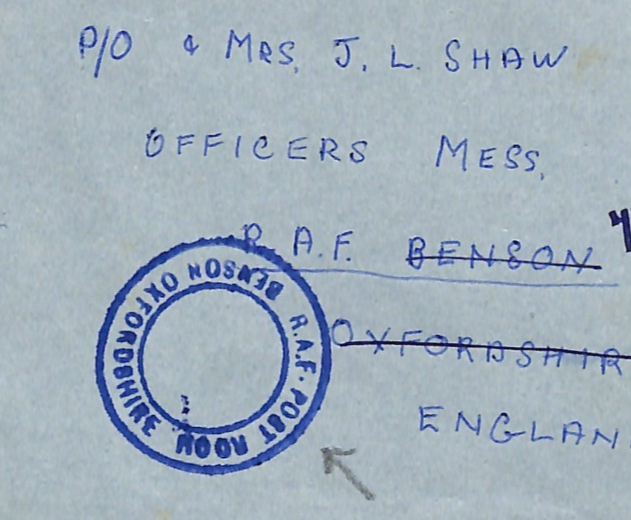 P/O & MRS. J. L. SHAW
OFFICERS MESS,
R. A.F. BENSON
OXFORDSHIR
ENGLAN
R.A.F. POST ROOM BENSON OXFORDSHIRE